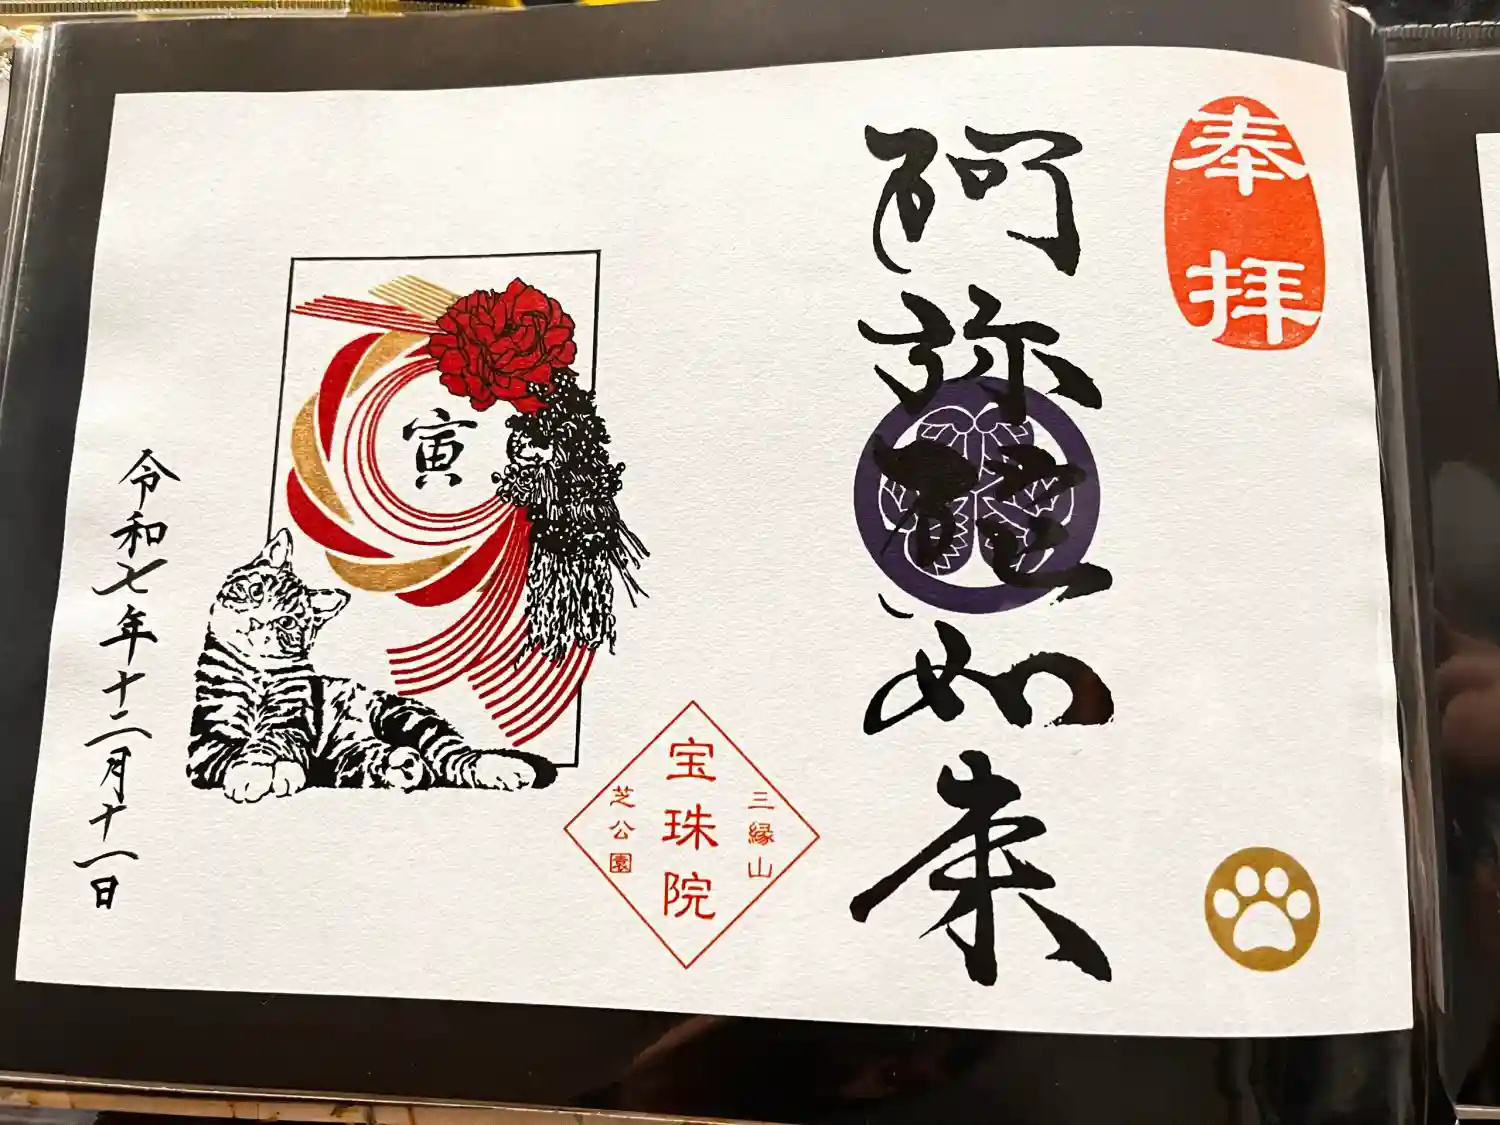 奉拝
阿弥陀如来
三縁山
宝珠院
芝公園
寅
令和七年十二月十一日